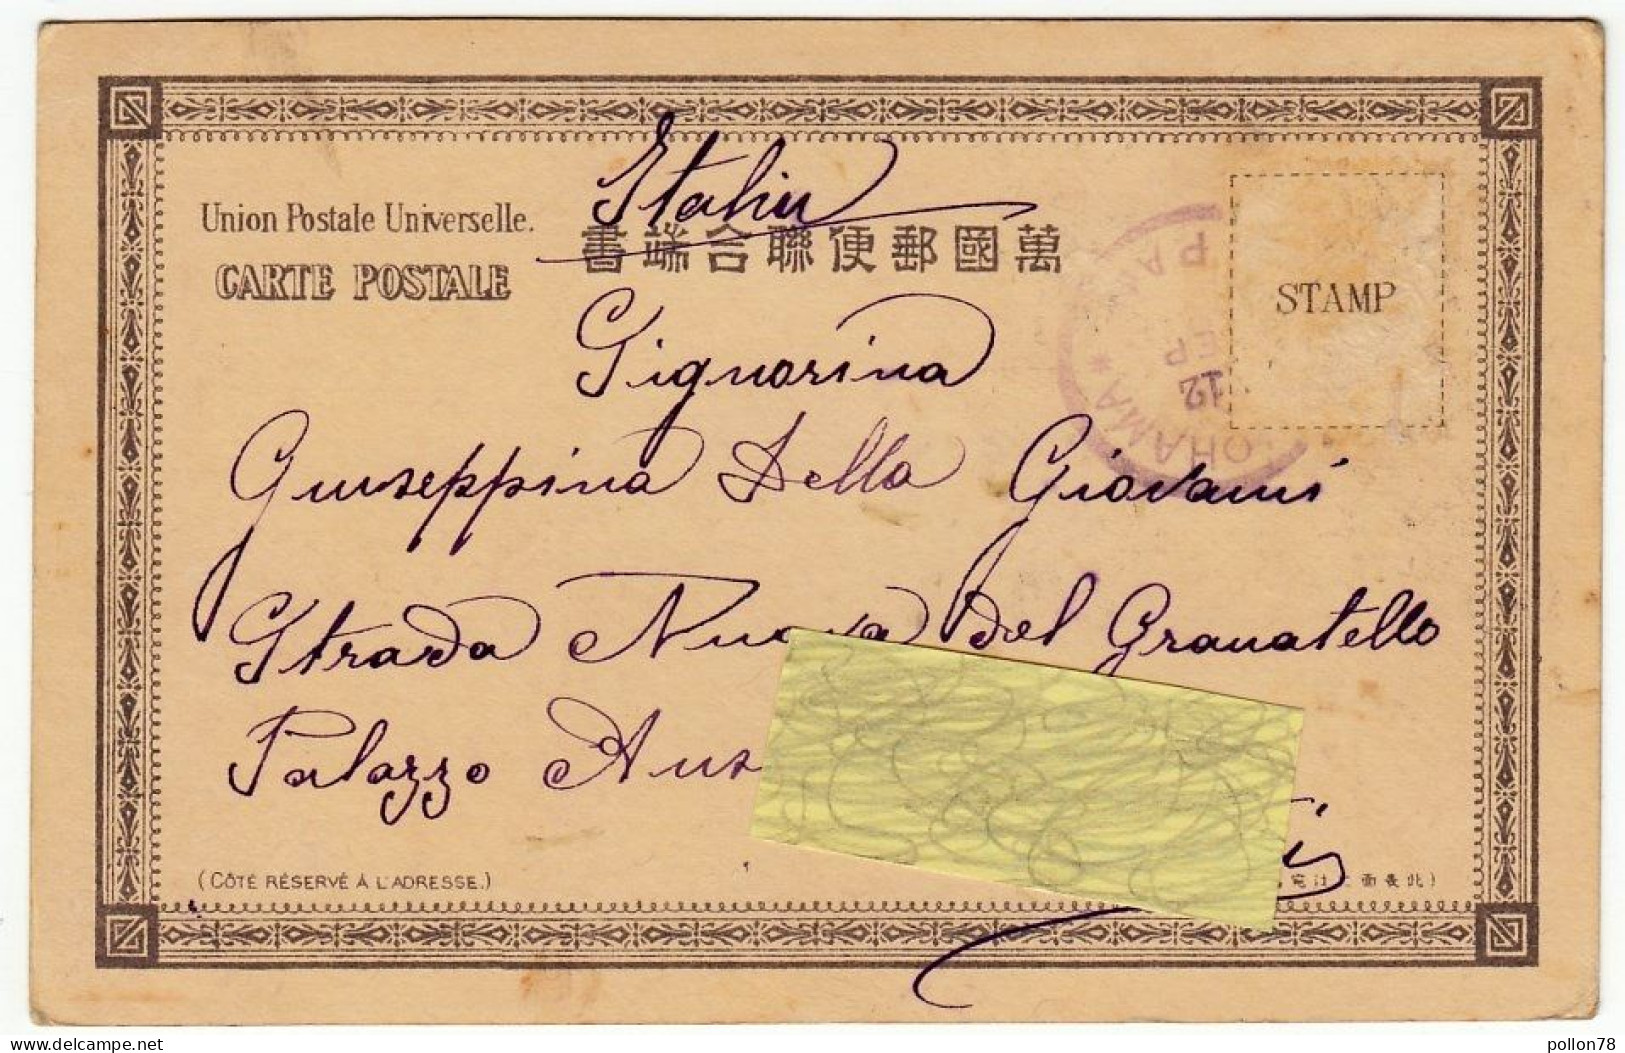 Italia
Union Postale Universelle.
書端合聯便郵國萬
CARTE POSTALE
STAMP
OHAMA *
12
EP
PA
Signorina
Giuseppina Della Giovanni
Strada Nuova del Granatello
Palazzo Aus
(CÔTÉ RÉSERVÉ À L'ADRESSE.)
delcampe.net
pollon78